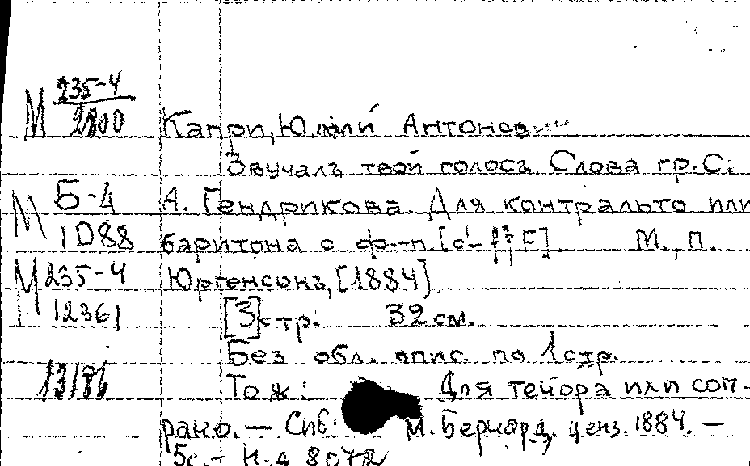 М 235-4/2800
Капри, Юлий Антонович
Звучалъ твой голосъ. Слова гр. С.
М Б-4 А. Гендрикова. Для контральто или
1088 баритона с ф-п. М., П.
М 235-4 Юргенсонъ, [1884]
12361 [3] стр. 32 см.
Без обл. опис. по 1 стр.
13186 То ж: Для тенора или соп-
рано. — Спб. М. Бернард, ценз. 1884. —
5с. — Н.д